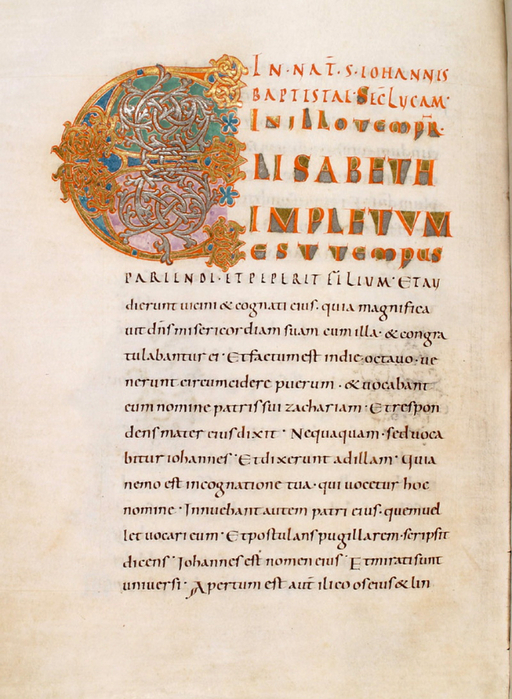 IN·NAT̄·S·IOHANNIS
BAPTISTAE·SEC̄LUCAM·
IN ILLO TEMPR̄·
ELISABETH
IMPLETVM
EST TEMPUS
PARIENDI·ET PEPERIT FILIUM·ET AU
dierunt uicini & cognati eius· quia magnifica
uit dn̄s misericordiam suam cum illa·& congra
tulabantur ei·Et factum est in die·octauo·ue
nerunt circumcidere puerum·& uocabant
eum nomine patris sui zachariam·Et respon
dens mater eius dixit·Nequaquam·sed uoca
bitur iohannes·Et dixerunt ad illam·Quia
nemo est in cognatione tua·qui uocetur hoc
nomine·Innuebant autem patri eius·quem uel
let uocari eum·Et postulans pugillarem·scripsit
dicens·Iohannes est nomen eius·Et mirati sunt
uniuersi·Apertum est aut̄ ilico os eius & lin